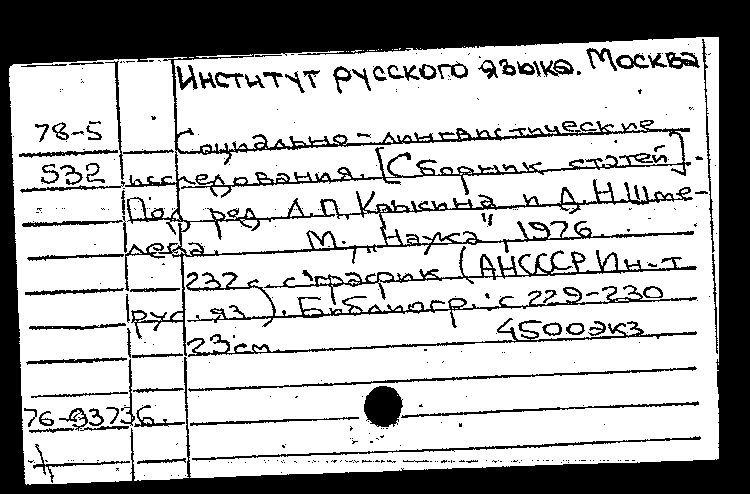 Институт русского языка. Москва
78-5 Социально-лингвистические
532 исследования. [Сборник статей].
Под ред. Л.П. Крысина и Д.Н. Шме-
лева. М., "Наука", 1976.
232 с. с график (АН СССР. Ин-т
рус. яз.). Библиогр.: с 229-230
23 см 4500 экз
76-93736.